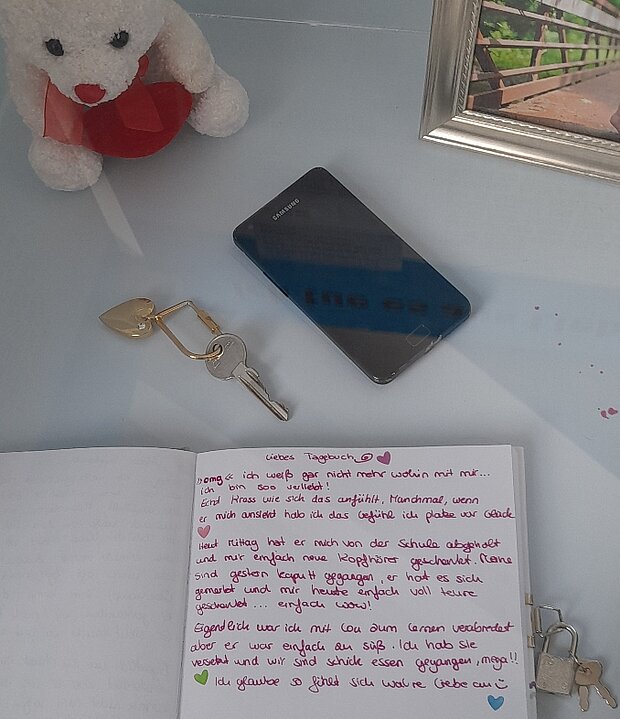 SAMSUNG
Liebes Tagebuch
"omg" ich weiß gar nicht mehr wohin mit mir...
ich bin soo verliebt!
Echt krass wie sich das anfühlt. Manchmal, wenn
er mich ansieht hab ich das Gefühl ich platze vor Glück
Heut Mittag hat er mich von der Schule abgeholt
und mir einfach neue Kopfhörer geschenkt. Meine
sind gestern kaputt gegangen, er hat es sich
gemerkt und mir heute einfach voll teure
geschenkt... einfach wow!
Eigendlich war ich mit Lou zum Lernen verabredet
aber er war einfach zu süß. Ich hab sie
versetzt und wir sind schick essen gegangen, mega!!
Ich glaube so fühlt sich wahre Liebe an